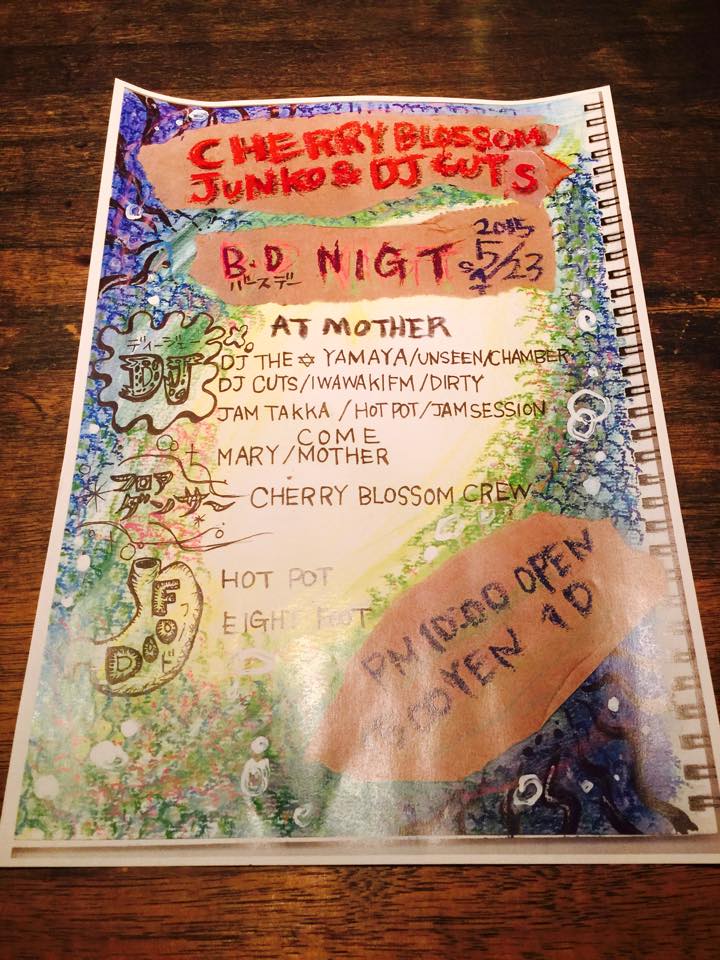 CHERRY BLOSSOM
JUNKO & DJ CUTS
B.D NIGT 2015 5/23
バースデー
AT MOTHER
ディージェー
DJ
DJ THE ✡ YAMAYA/UNSEEN/CHAMBER
DJ CUTS/IWAWAKIFM/DIRTY
JAM TAKKA / HOT POT/JAM SESSION
COME
MARY/MOTHER
フロアー
ダンサー
CHERRY BLOSSOM CREW
FOOD
フード
HOT POT
EIGHT FOOT
PM 10:00 OPEN
YEN 1D